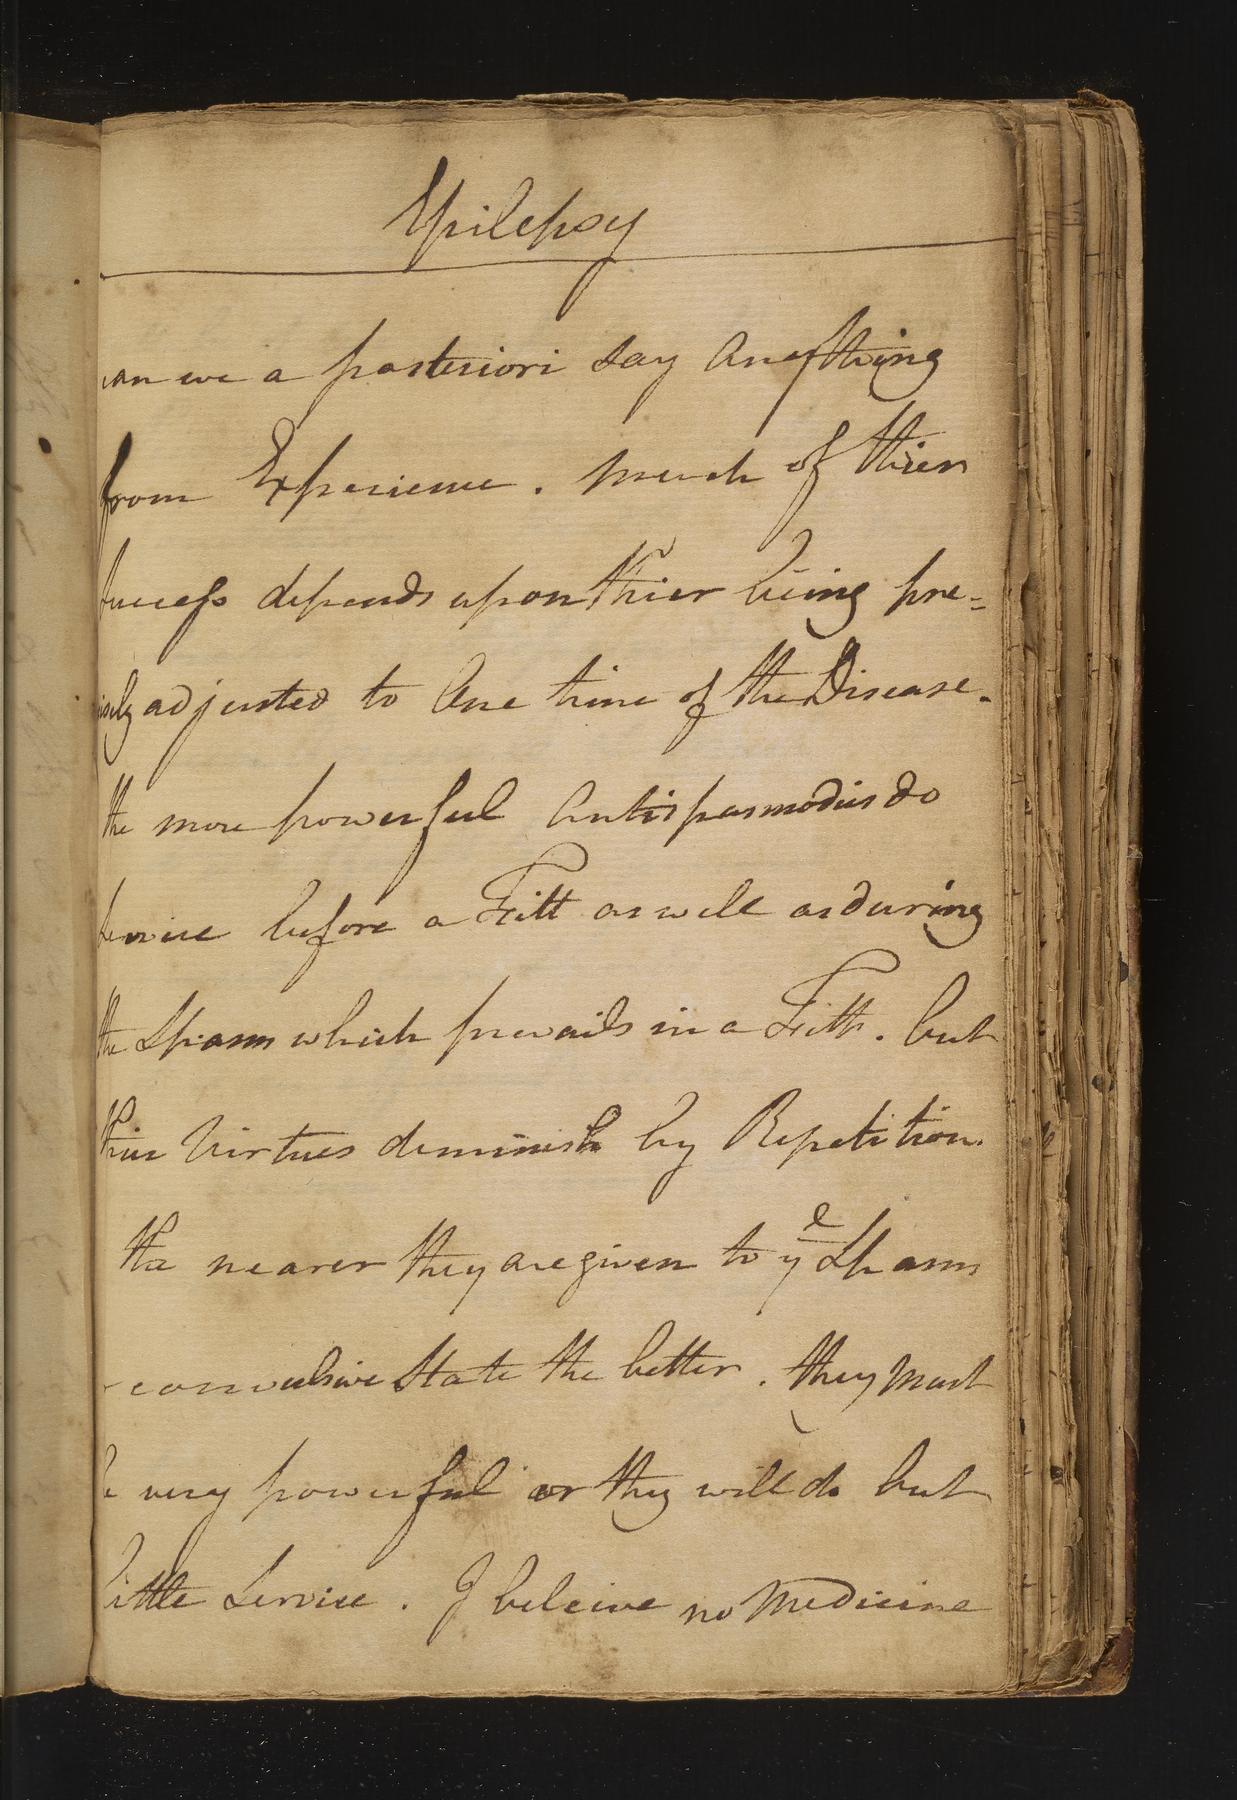 Epilepsy
can we a posteriori say Anything
from Experience. much of thier
Success depends upon thier being pre=
isely adjusted to One time of the Disease.
the more powerful Antispasmodics do
Service before a Fitt as well as during
the Spasm which prevails in a Fitt. but
thier Virtues diminish by Repetition.
the nearer they are given to ye Spasm
convulsive State the better. they must
be very powerful or they will do but
little Service. I beleive no Medicine